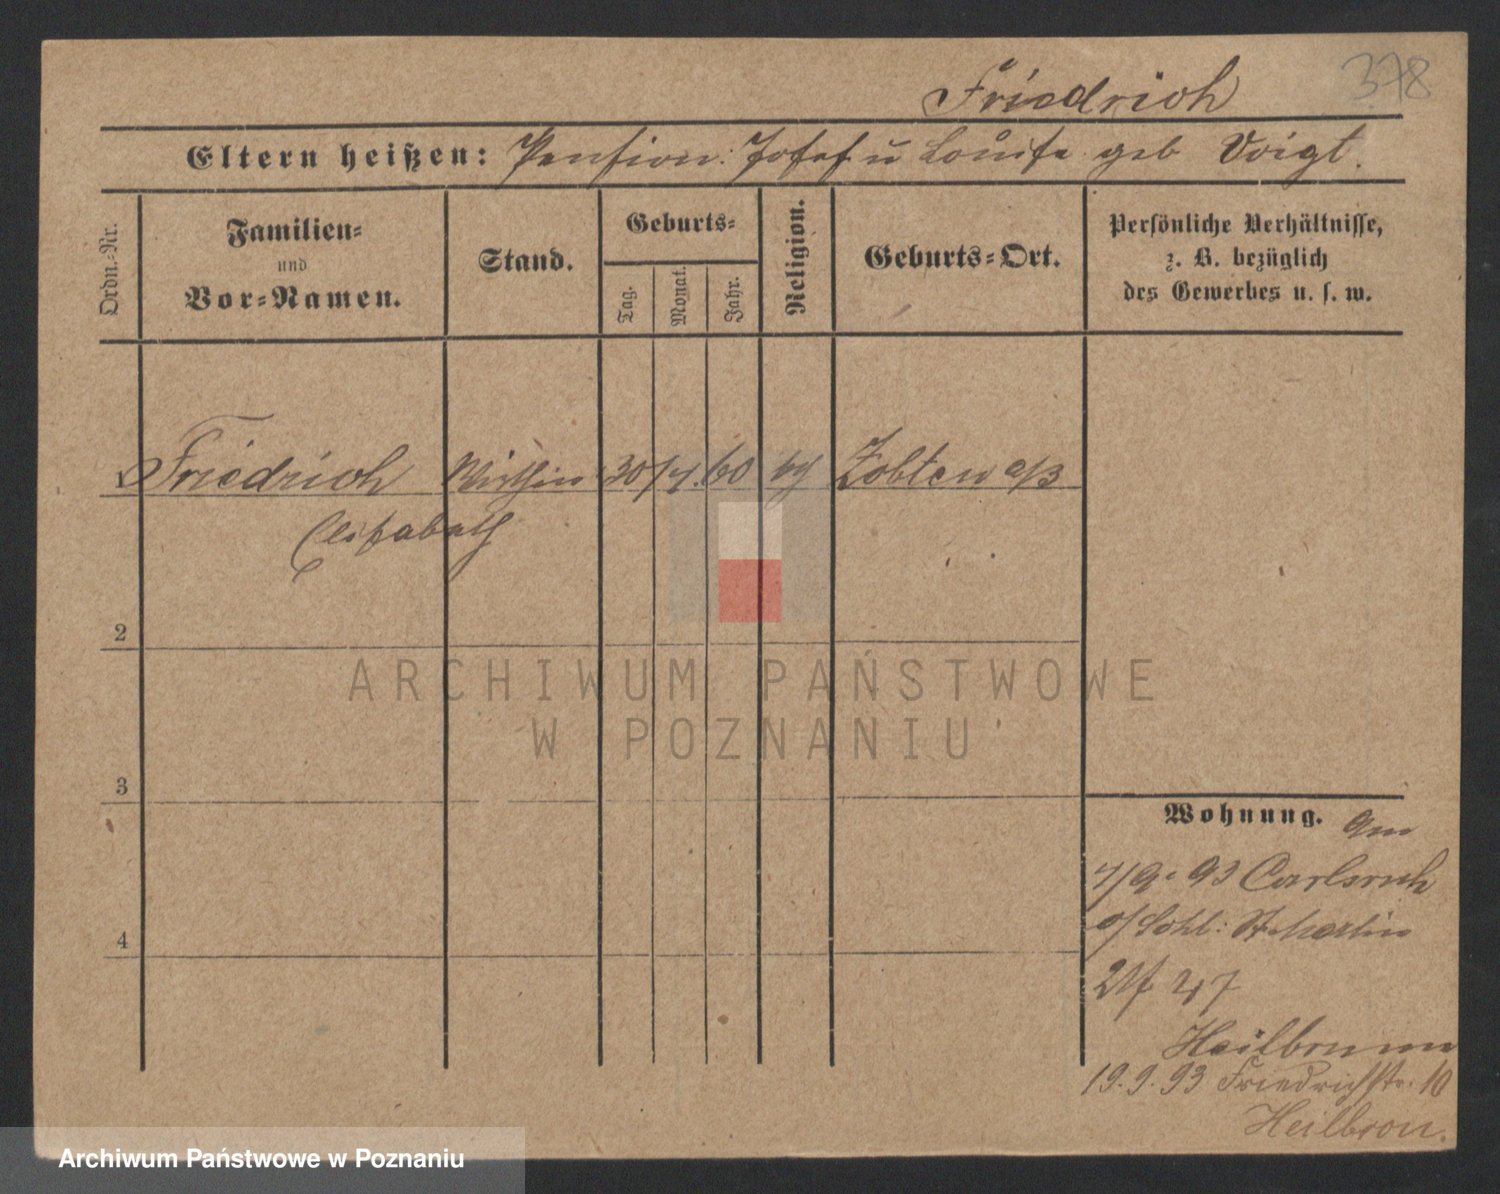 378
Friedrich
Eltern heißen: Pension: Josef u Louise geb Voigt.
Ordn.-Nr.
Familien-
und
Vor-Namen.
Stand.
Geburts-
Tag.
Monat.
Jahr.
Religion.
Geburts-Ort.
Persönliche Verhältnisse,
z. B. bezüglich
des Gewerbes u. s. w.
Friedrich Wirthin 30/4. 60 Zobten a/B
Elisabeth
2
3
4
ARCHIWUM PAŃSTWOWE
W POZNANIU
Wohnung. am
7/9. 93 Carlsruh
o/Schl: St Martin
47
Heilbrunn
19.9.93 Friedrichstr. 10
Heilbron.
Archiwum Państwowe w Poznaniu